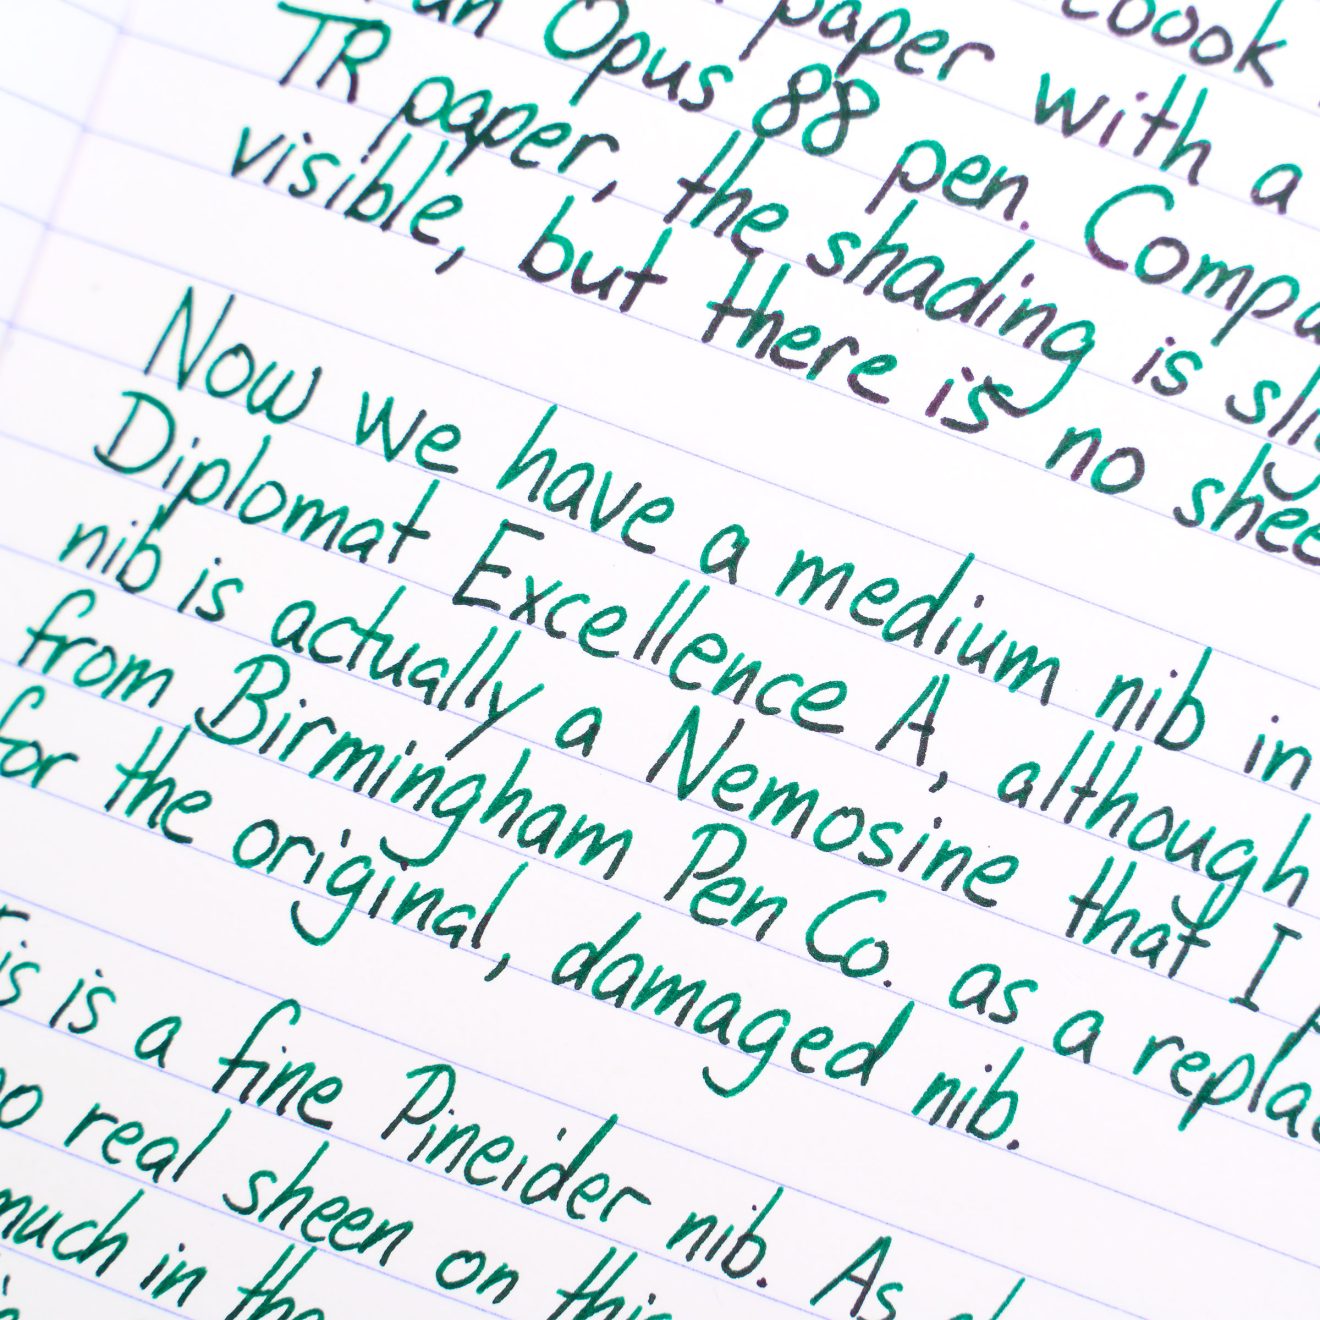 paper with a
an Opus 88 pen. Comp
TR paper, the shading is
visible, but there is no shee
Now we have a medium nib in
Diplomat Excellence A, although
nib is actually a Nemosine that I
from Birmingham Pen Co. as a repla
for the original, damaged nib.
is is a fine Pineider nib. As
no real sheen on this
much in the